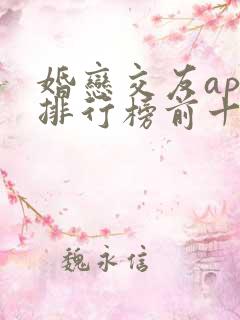 婚戀交友ap
排行榜前十
魏永信